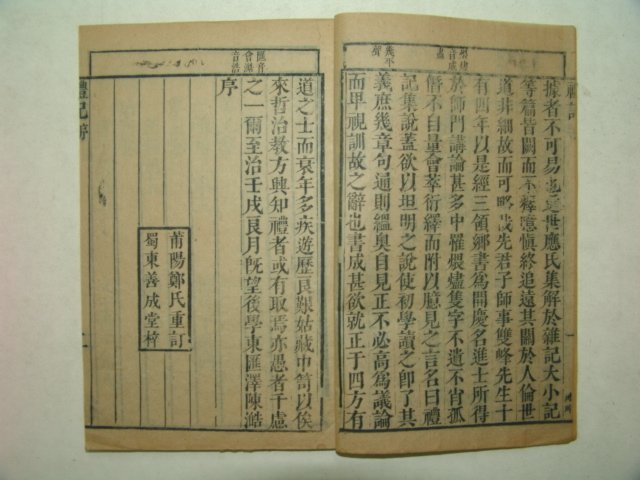 據者不可易也近世應氏集解於雜記大小記
等篇皆闕而不釋噫愼終追遠其關於人倫世
道非細故而可略哉先君子師事雙峰先生十
有四年以是經三領鄉書爲開慶名進士所得
於師門講論甚多中罹煨燼隻字不遺不肖孤
僭不自量會萃衍繹而附以臆見之言名曰禮
記集說蓋欲以坦明之說使初學讀之即了其
義庶幾章句通則蘊奥自見正不必高爲議論
而卑視訓故之辭也書成甚欲就正于四方有
幾平
聲
道之士而衰年多疾遊歷良艱姑藏巾笥以俟
來哲治教方興知禮者或有取焉亦愚者千慮
之一爾至治壬戌良月旣望後學東匯澤陳澔
序
匯音
會澔
音浩
莆陽鄭氏重訂
蜀東善成堂梓
禮記序